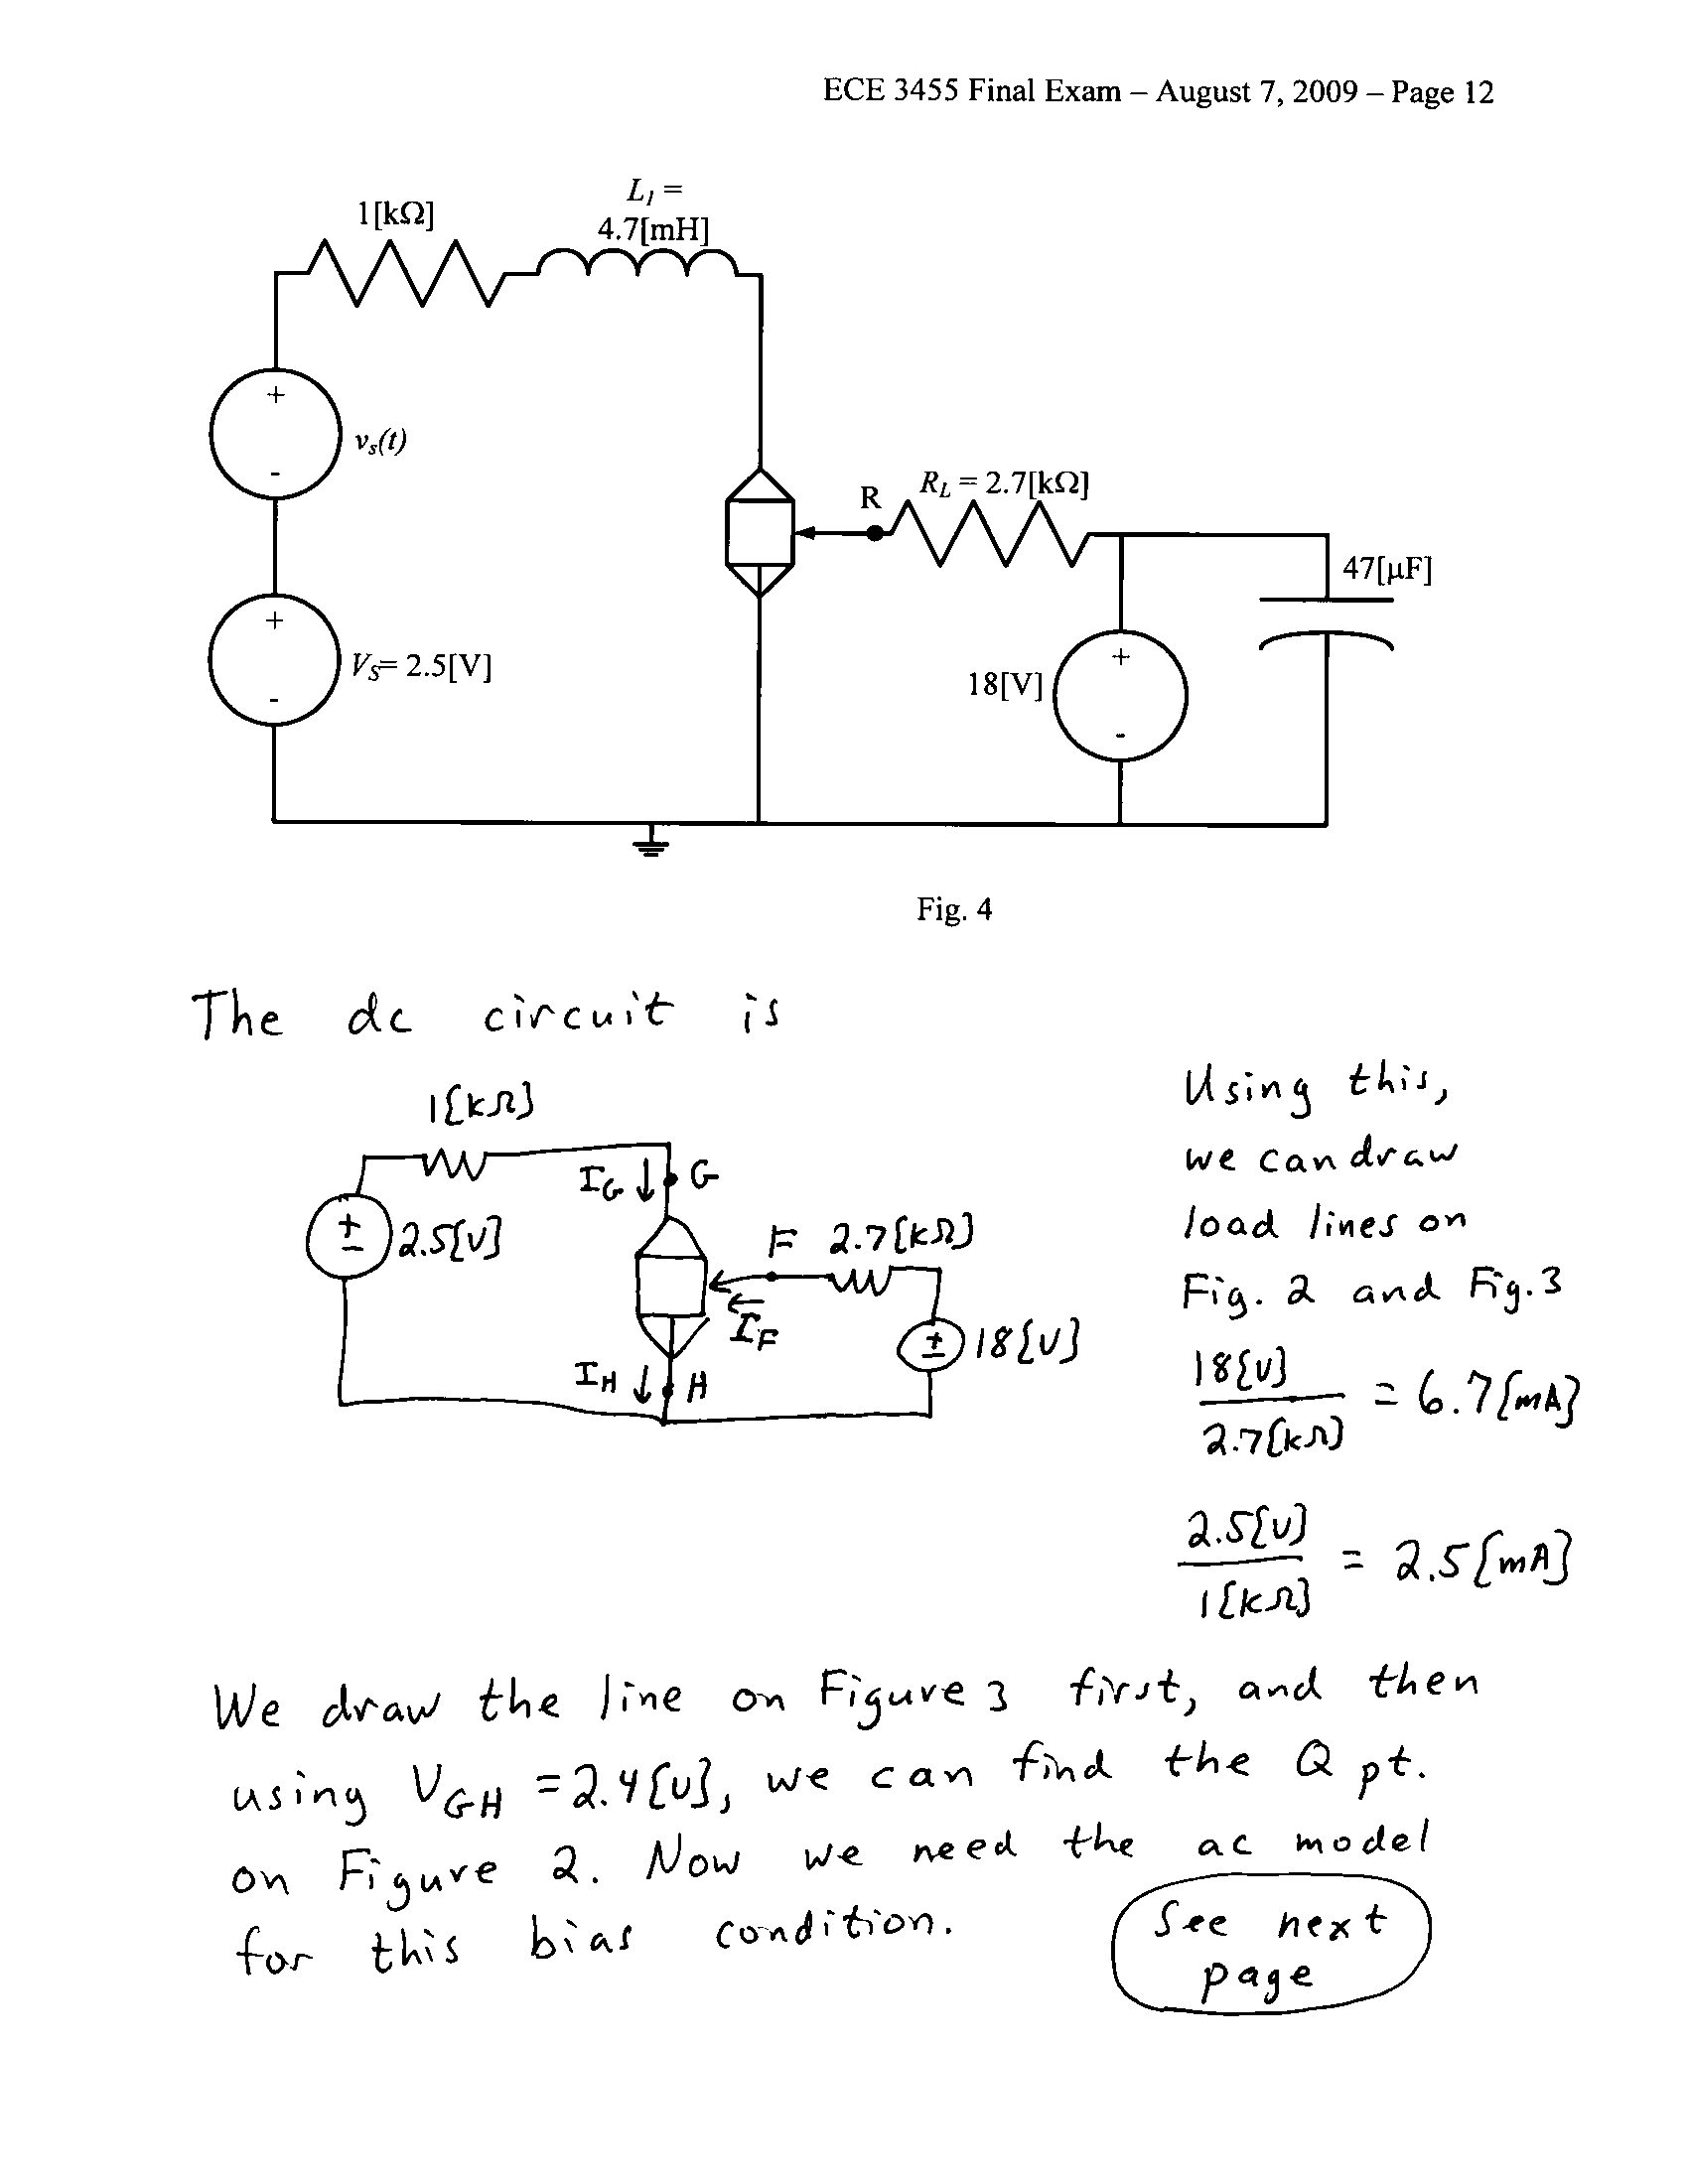 ECE 3455 Final Exam – August 7, 2009 – Page 12
L1 =
4.7[mH]
1[kΩ]
+
vs(t)
-
R
RL = 2.7[kΩ]
47[μF]
+
VS= 2.5[V]
-
+
18[V]
-
Fig. 4
The dc circuit is
1[kΩ]
Using this,
we can draw
load lines on
Fig. 2 and Fig. 3
IG
G
+
-
2.5[V]
F
2.7[kΩ]
IF
+
-
18[V]
IH
H
18[V]
2.7[kΩ]
= 6.7[mA]
2.5[V]
1[kΩ]
= 2.5[mA]
We draw the line on Figure 3 first, and then
using VGH = 2.4[V], we can find the Q pt.
on Figure 2. Now we need the ac model
for this bias condition.
See next
page